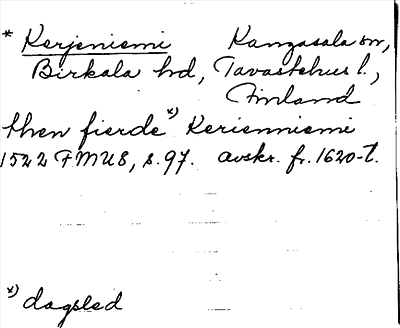 * Kerjeniemi Kangasala sn,
Birkala hd, Tavastehus l.,
Finland
then fierde *) Kerienniemi
1522 FMU 8, s. 97. avskr. fr. 1620-t.
*) dagsled